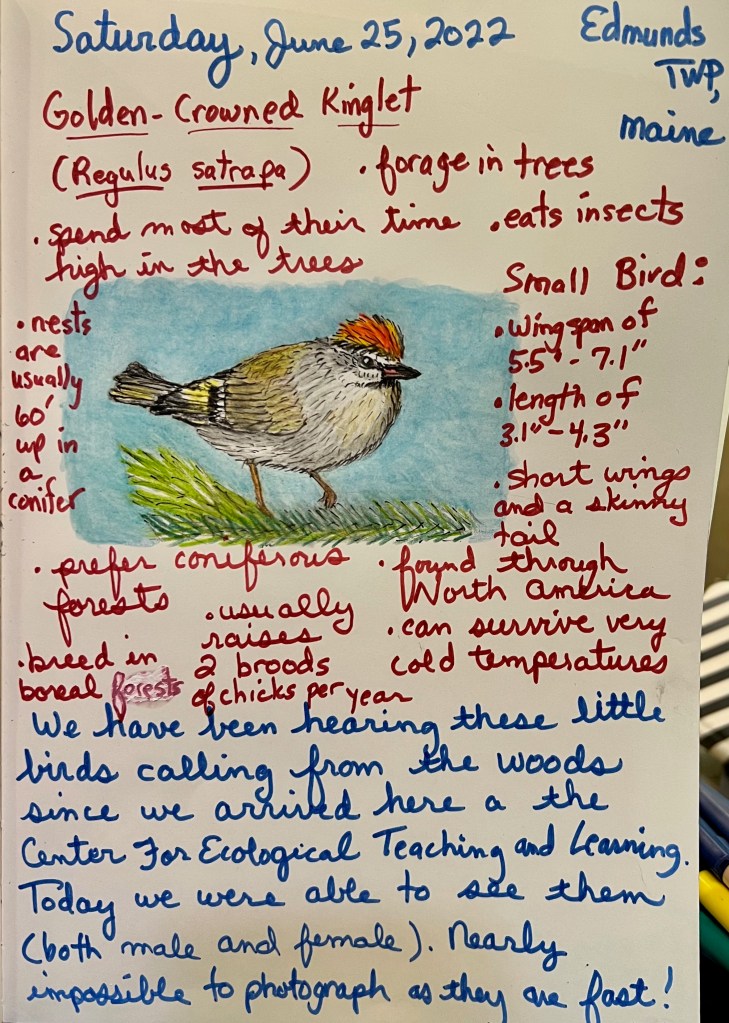 Saturday, June 25, 2022
Edmunds
TWP,
Maine
Golden-Crowned Kinglet
(Regulus satrapa)
• forage in trees
• spend most of their time
high in the trees
• eats insects
Small Bird:
• wingspan of
5.5" - 7.1"
• length of
3.1" - 4.3"
• short wings
and a skinny
tail
• nests
are
usually
60'
up in
a
conifer
• prefer coniferous
forests
• found through
North America
• usually
raises
2 broods
of chicks per year
• can survive very
cold temperatures
• breed in
boreal forests
We have been hearing these little
birds calling from the woods
since we arrived here a the
Center For Ecological Teaching and Learning.
Today we were able to see them
(both male and female). Nearly
impossible to photograph as they are fast!